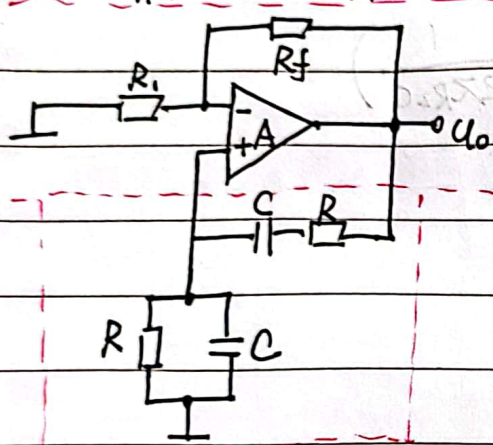 Rf
R₁
-
A
+
u₀
C R
R C